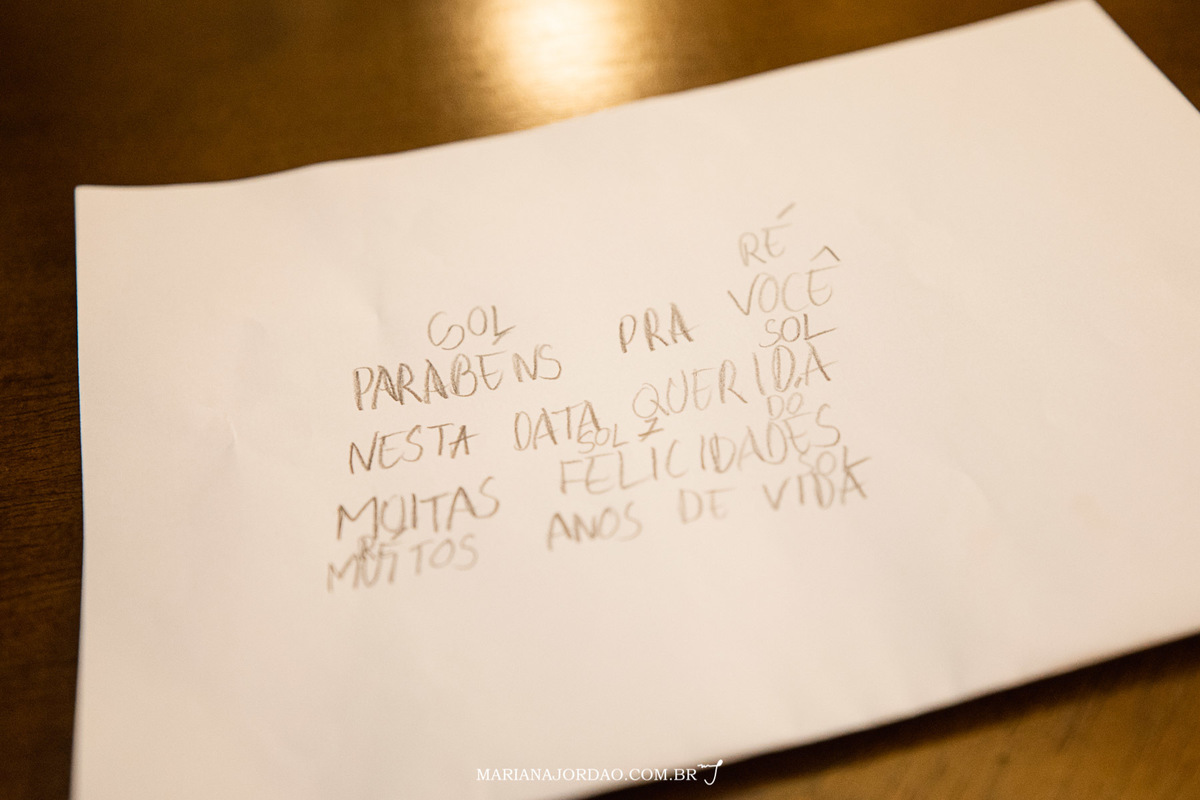 RÉ
SOL
PARABÉNS PRA VOCÊ
SOL
NESTA DATA QUERIDA
SOL 7 DÓ
MUITAS FELICIDADES
RÉ SOL
MUITOS ANOS DE VIDA
MARIANAJORDAO.COM.BR